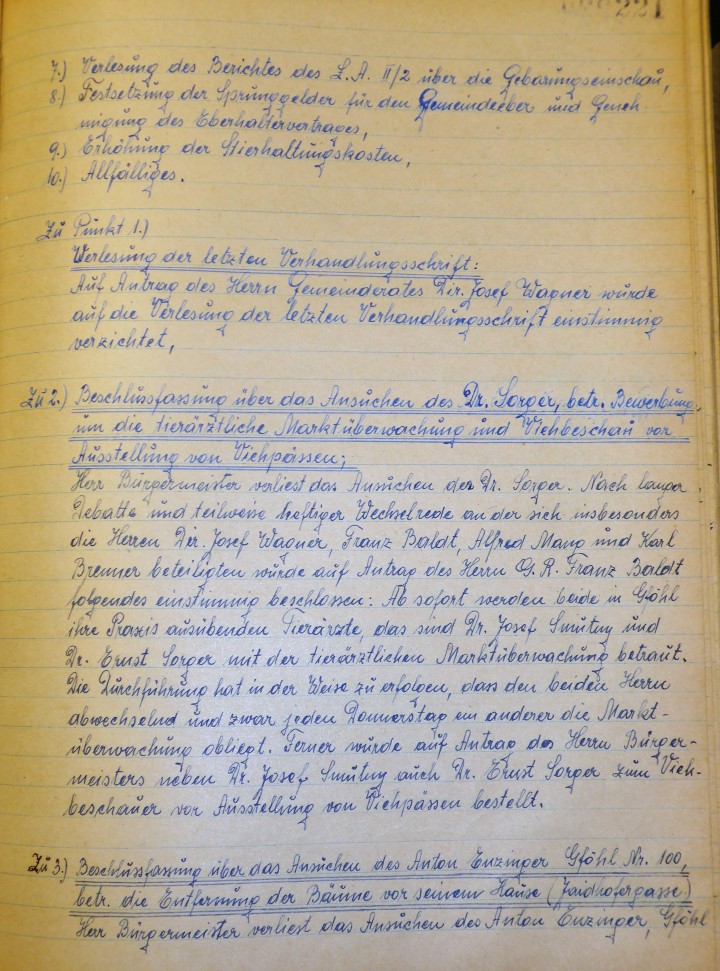 7.) Verlesung des Berichtes des L.A. II/2 über die Gebarungseinschau,
8.) Festsetzung der Sprunggelder für den Gemeindeeber und Geneh-
migung des Eberhaltervertrages,
9.) Erhöhung der Stierhaltungskosten,
10.) Allfälliges.
Zu Punkt 1.)
Verlesung der letzten Verhandlungsschrift:
Auf Antrag des Herrn Gemeinderates Dir. Josef Wagner wurde
auf die Verlesung der letzten Verhandlungsschrift einstimmig
verzichtet,
Zu 2.) Beschlussfassung über das Ansuchen des Dr. Sorger, betr. Bewerbung
um die tierärztliche Marktüberwachung und Viehbeschau vor
Ausstellung von Viehpässen;
Herr Bürgermeister verliest das Ansuchen des Dr. Sorger. Nach langer
Debatte und teilweise heftiger Wechselrede an der sich insbesonders
die Herren Dir. Josef Wagner, Franz Baldt, Alfred Mang und Karl
Brenner beteiligten wurde auf Antrag des Herrn G.R. Franz Baldt
folgendes einstimmig beschlossen: Ab sofort werden beide in Gföhl
ihre Praxis ausübenden Tierärzte, das sind Dr. Josef Smutny und
Dr. Ernst Sorger mit der tierärztlichen Marktüberwachung betraut.
Die Durchführung hat in der Weise zu erfolgen, dass den beiden Herrn
abwechselnd und zwar jeden Donnerstag ein anderer die Markt-
überwachung obliegt. Ferner wurde auf Antrag des Herrn Bürger-
meisters neben Dr. Josef Smutny auch Dr. Ernst Sorger zum Vieh-
beschauer vor Ausstellung von Viehpässen bestellt.
Zu 3.) Beschlussfassung über das Ansuchen des Anton Enzinger Gföhl Nr. 100,
betr. die Entfernung der Bäume vor seinem Hause (Jaidhofergasse)
Herr Bürgermeister verliest das Ansuchen des Anton Enzinger, Gföhl